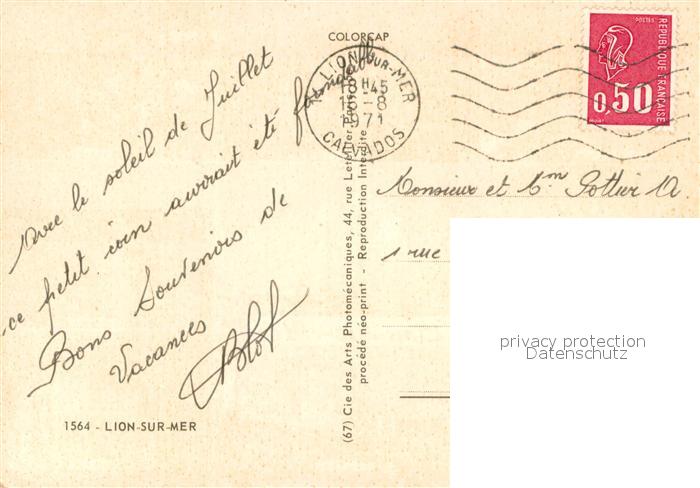 COLORCAP
LION-SUR-MER
18H45
1971
CALVADOS
POSTES
REPUBLIQUE FRANÇAISE
0,50
Avec le soleil de Juillet
ce petit coin aurait été formidable
Bons Souvenirs de
Vacances
Monsieur et Mm Gottier A
1 rue
(67) Cie des Arts Photomécaniques, 44, rue Letellier, Paris
procédé néo-print - Reproduction Interdite
privacy protection
Datenschutz
1564 - LION-SUR-MER